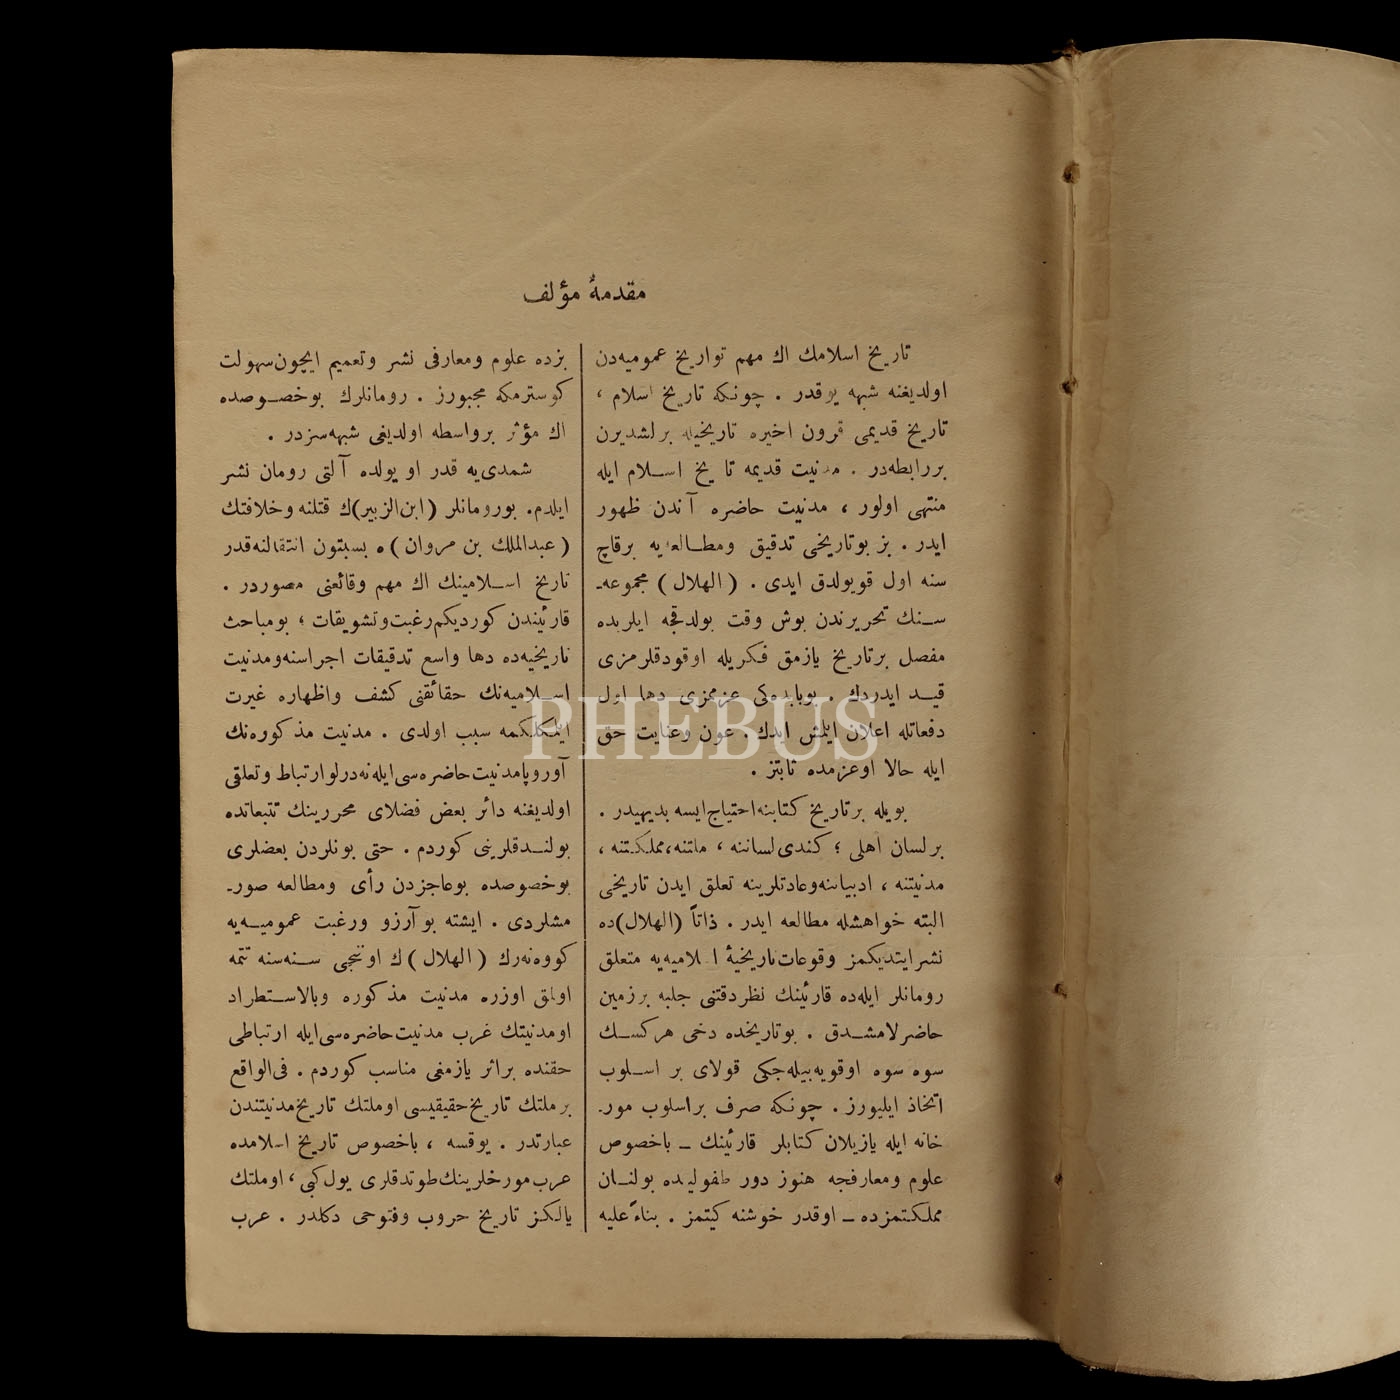 مقدمهٔ مؤلف
تاریخ اسلامك اك مهم تواریخ عمومیه‌دن
اولدیغنه شبهه یوقدر . چونكه تاریخ اسلام ،
تاریخ قدیمی قرون اخیره تاریخیله برلشدیرن
بررابطه‌در . مدنیت قدیمه تاریخ اسلام ایله
منتهی اولور ، مدنیت حاضره آندن ظهور
ایدر . بز بوتاریخی تدقیق ومطالعه‌یه برقاچ
سنه اول قویولدق ایدی . (الهلال) مجموعه‌ـ
سنك تحریرندن بوش وقت بولدقجه ایلریده
مفصل برتاریخ یازمق فكریله اوقودقلرمزی
قید ایدردك . بوبابده‌كی عزممزی دها اول
دفعاتله اعلان ایلمش ایدك . عون وعنایت حق
ایله حالا اوعزمده ثابتز .
بویله برتاریخ كتابنه احتیاج ایسه بدیهیدر .
برلسان اهلی ؛ كندی لساننه ، ملتنه ، مملكتنه ،
مدنیتنه ، ادبیاتنه وعادتلرینه تعلق ایدن تاریخی
البته خواهشله مطالعه ایدر . ذاتاً (الهلال)ده
نشر ایتدیكمز وقوعات تاریخیهٔ اسلامیه‌یه متعلق
رومانلر ایله‌ده قارئینك نظر دقتنی جلبه برزمین
حاضرلامشدق . بوتاریخده دخی هركسك
سوه سوه اوقویه‌بیله‌جكی قولای بر اسلوب
اتخاذ ایلیورز . چونكه صرف براسلوب مورـ
خانه ایله یازیلان كتابلر قارئینك ـ باخصوص
علوم ومعارفجه هنوز دور طفولیده بولنان
مملكتمزده ـ اوقدر خوشنه كیتمز . بناءً علیه
بزده علوم ومعارفی نشر وتعمیم ایچون سهولت
كوسترمكه مجبورز . رومانلرك بوخصوصده
اك مؤثر برواسطه اولدیغی شبهه‌سزدر .
شمدی‌یه قدر او یولده آلتی رومان نشر
ایلدم . بورومانلر (ابن‌الزبیر)ك قتلنه وخلافتك
(عبدالملك بن مروان)ه بسبتون انتقالنه قدر
تاریخ اسلامینك اك مهم وقائعنی مصوردر .
قارئیندن كوردیكم رغبت وتشویقات ؛ بومباحث
تاریخیه‌ده دها واسع تدقیقات اجراسنه ومدنیت
اسلامیه‌نك حقائقنی كشف واظهاره غیرت
ایلمكلكمه سبب اولدی . مدنیت مذكوره‌نك
آوروپا مدنیت حاضره‌سی ایله نه‌درلو ارتباط وتعلقی
اولدیغنه دائر بعض فضلای محررینك تتبعاتده
بولندقلرینی كوردم . حتی بونلردن بعضلری
بوخصوصده بوعاجزدن رأی ومطالعه صورـ
مشلردی . ایشته بو آرزو ورغبت عمومیه‌یه
كووه‌نه‌رك (الهلال)ك اوننجی سنه‌سنه تتمه
اولمق اوزره مدنیت مذكوره وبالاستطراد
اومدنیتك غرب مدنیت حاضره‌سی ایله ارتباطی
حقنده براثر یازمغی مناسب كوردم . فی‌الواقع
برملتك تاریخ حقیقیسی اوملتك تاریخ مدنیتندن
عبارتدر . یوقسه ، باخصوص تاریخ اسلامده
عرب مورخلرینك طوتدقلری یول كبی ، اوملتك
یالكز تاریخ حروب وفتوحی دكلدر . عرب
PHEBUS